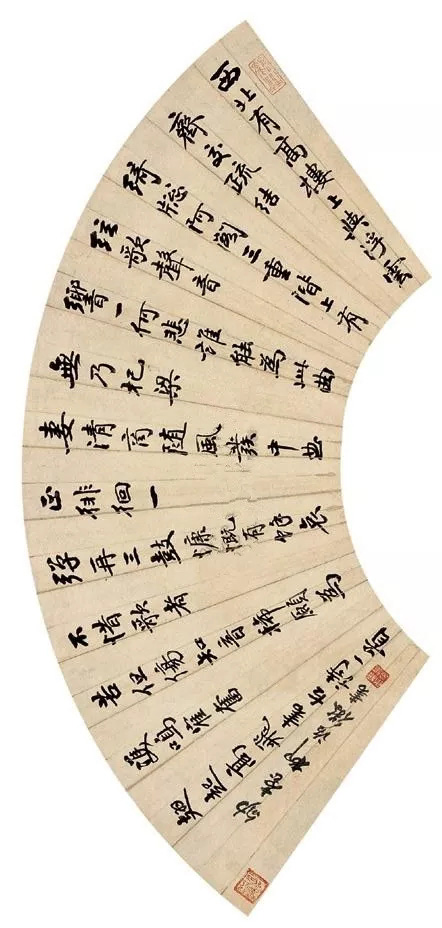 西北有高樓上與浮雲
齊交疏結
綺窓阿閣三重階上有
弦歌聲音
響一何悲誰能為此曲
無乃杞梁
妻清商隨風發中曲
正徘徊一
彈再三慷慨有餘哀
不惜歌者
苦但傷知音稀願為
雙鳴鶴奮
翅起高飛書古詩一首